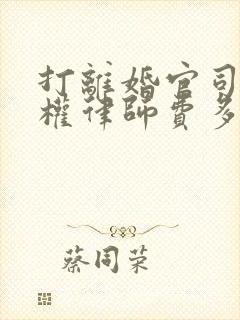 打離婚官司
權律師費多
蔡同荣